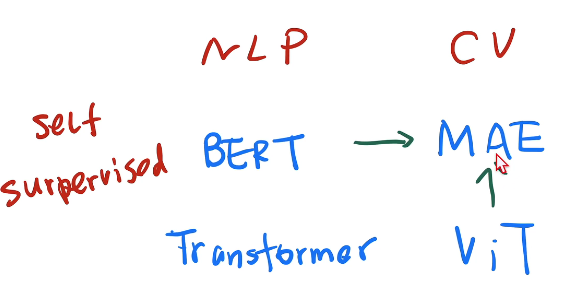 NLP CV
self
surpervised
BERT → MAE
Transformer ViT